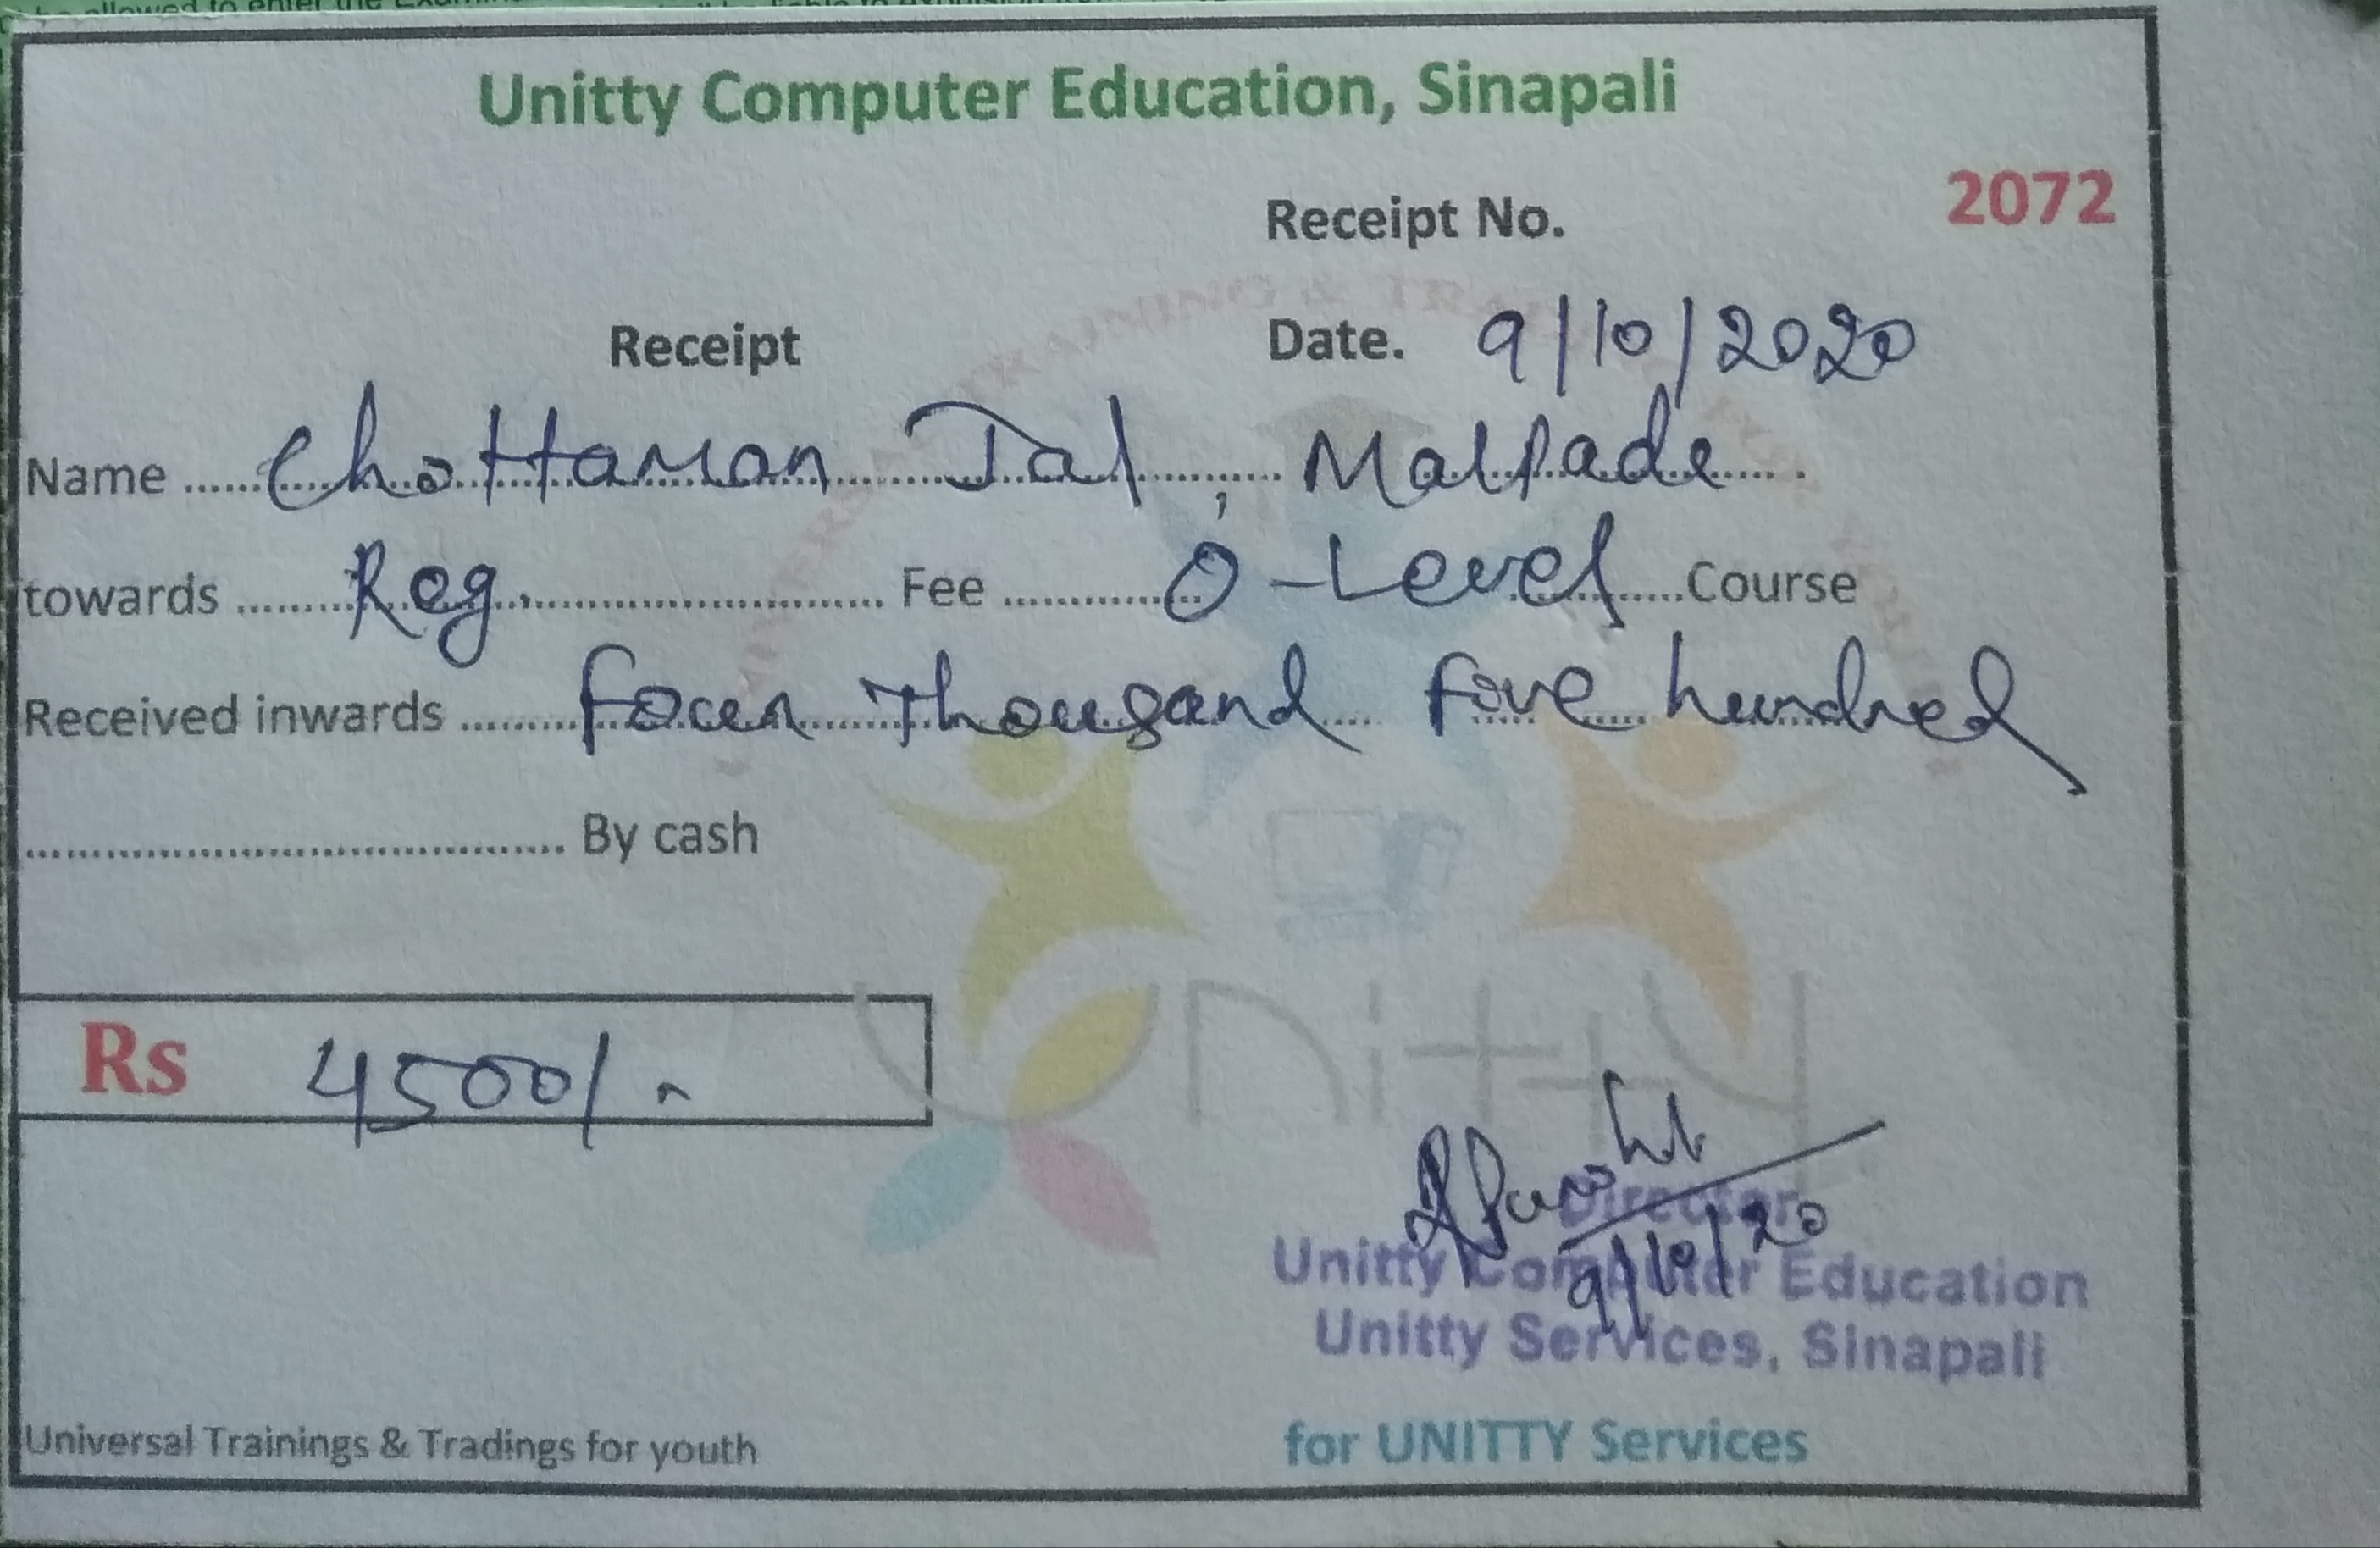 Unitty Computer Education, Sinapali
Receipt No. 2072
Receipt Date. 9/10/2020
Name ...... Chattaman Jal, Malpada .
towards ...... Reg. ...... Fee ...... O-Level ...... Course
Received inwards ...... Four Thousand Five hundred
...... By cash
Rs 4500/-
Director
9/10/20
Unitty Computer Education
Unitty Services, Sinapali
Universal Trainings & Tradings for youth
for UNITTY Services